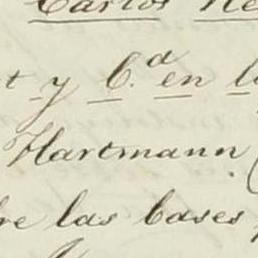 Carlos
y C.a en
Hartmann
las bases